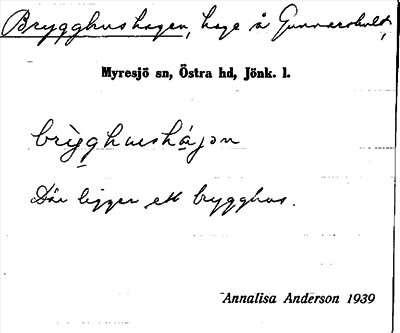 Brygghushagen, hage å Gunnarsholt,
Myresjö sn, Östra hd, Jönk. l.
brìg̱ghushágən
Där ligger ett brygghus.
Annalisa Anderson 1939